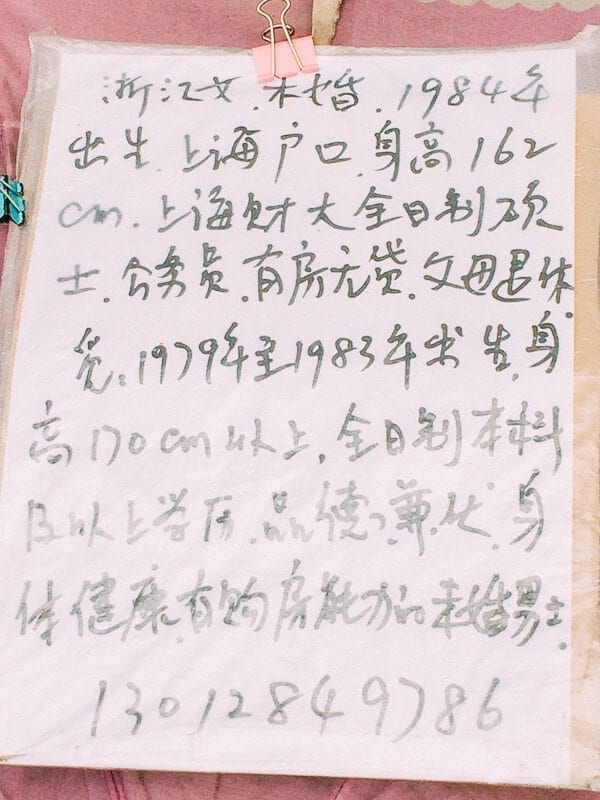 浙江女.未婚.1984年
出生.上海户口.身高162
cm.上海财大全日制硕
士.公务员.有房无贷.父母退休.
觅:1979年至1983年出生,身
高170cm以上,全日制本科
及以上学历.品德兼优.身
体健康,有购房能力的未婚男士.
13012849786